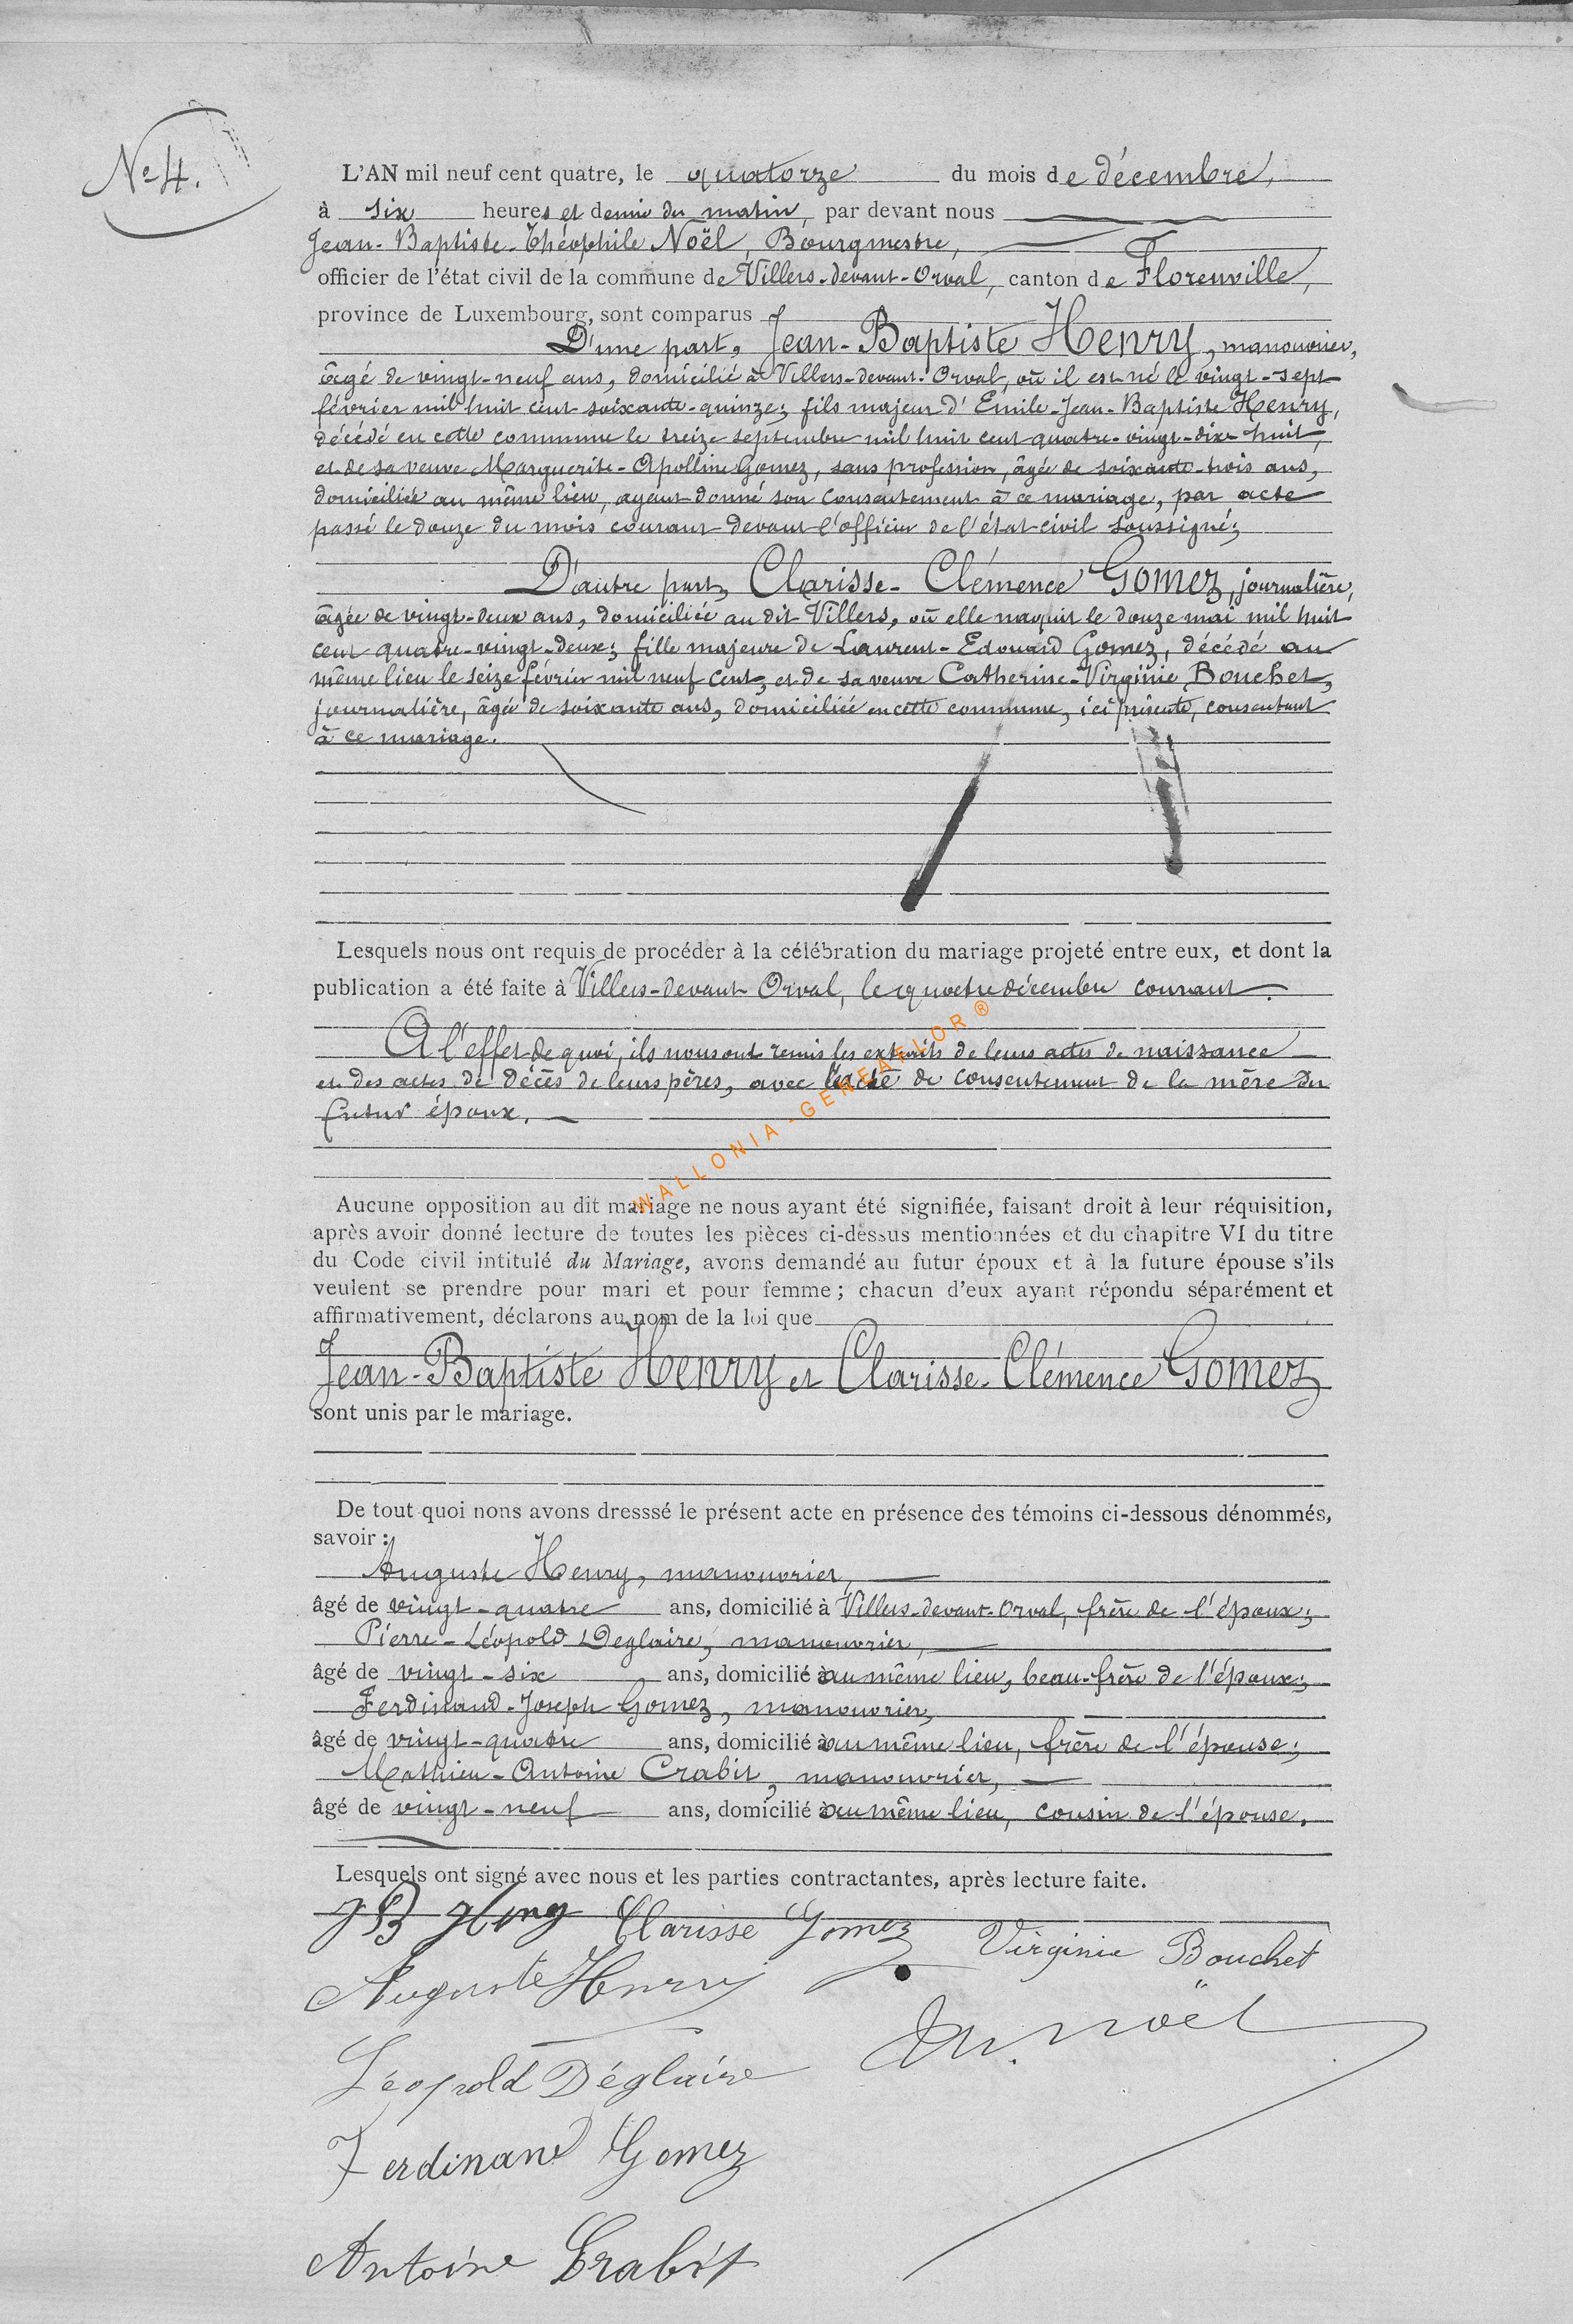 N° 4.
L'AN mil neuf cent quatre, le quatorze du mois de décembre,
à six heures et demie du matin, par devant nous
Jean-Baptiste-Théophile Noël, Bourgmestre,
officier de l'état civil de la commune de Villers-devant-Orval, canton de Florenville,
province de Luxembourg, sont comparus
D'une part, Jean-Baptiste Henry, manouvrier,
âgé de vingt-neuf ans, domicilié à Villers-devant-Orval, où il est né le vingt-sept
février mil huit cent soixante-quinze; fils majeur d'Emile-Jean-Baptiste Henry,
décédé en cette commune le treize septembre mil huit cent quatre-vingt-dix-huit,
et de sa veuve Marguerite-Apolline Gomez, sans profession, âgée de soixante-trois ans,
domiciliée au même lieu, ayant donné son consentement à ce mariage, par acte
passé le douze du mois courant devant l'officier de l'état-civil soussigné;
D'autre part, Clarisse-Clémence Gomez, journalière,
âgée de vingt-deux ans, domiciliée au dit Villers, où elle naquit le douze mai mil huit
cent quatre-vingt-deux; fille majeure de Laurent-Edouard Gomez, décédé au
même lieu le seize février mil neuf cent, et de sa veuve Catherine-Virginie Bouchet,
journalière, âgée de soixante ans, domiciliée en cette commune, ici présente, consentant
à ce mariage.
Lesquels nous ont requis de procéder à la célébration du mariage projeté entre eux, et dont la
publication a été faite à Villers-devant-Orval, le quatre décembre courant.
A l'effet de quoi, ils nous ont remis les extraits de leurs actes de naissance
et des actes de décès de leurs pères, avec l'acte de consentement de la mère du
futur époux.
WALLONIA-GENEAFLOR ®
Aucune opposition au dit mariage ne nous ayant été signifiée, faisant droit à leur réquisition,
après avoir donné lecture de toutes les pièces ci-dessus mentionnées et du chapitre VI du titre
du Code civil intitulé du Mariage, avons demandé au futur époux et à la future épouse s'ils
veulent se prendre pour mari et pour femme; chacun d'eux ayant répondu séparément et
affirmativement, déclarons au nom de la loi que
Jean-Baptiste Henry et Clarisse-Clémence Gomez
sont unis par le mariage.
De tout quoi nons avons dresssé le présent acte en présence des témoins ci-dessous dénommés,
savoir :
Auguste Henry, manouvrier,
âgé de vingt-quatre ans, domicilié à Villers-devant-Orval, frère de l'époux;
Pierre-Léopold Deglaire, manouvrier,
âgé de vingt-six ans, domicilié au même lieu, beau-frère de l'époux;
Ferdinand-Joseph Gomez, manouvrier,
âgé de vingt-quatre ans, domicilié au même lieu, frère de l'épouse;
Mathieu-Antoine Crabit, manouvrier,
âgé de vingt-neuf ans, domicilié au même lieu, cousin de l'épouse.
Lesquels ont signé avec nous et les parties contractantes, après lecture faite.
JB Henry Clarisse Gomez Virginie Bouchet
Auguste Henry
Noël
Léopold Déglaire
Ferdinand Gomez
Antoine Crabit